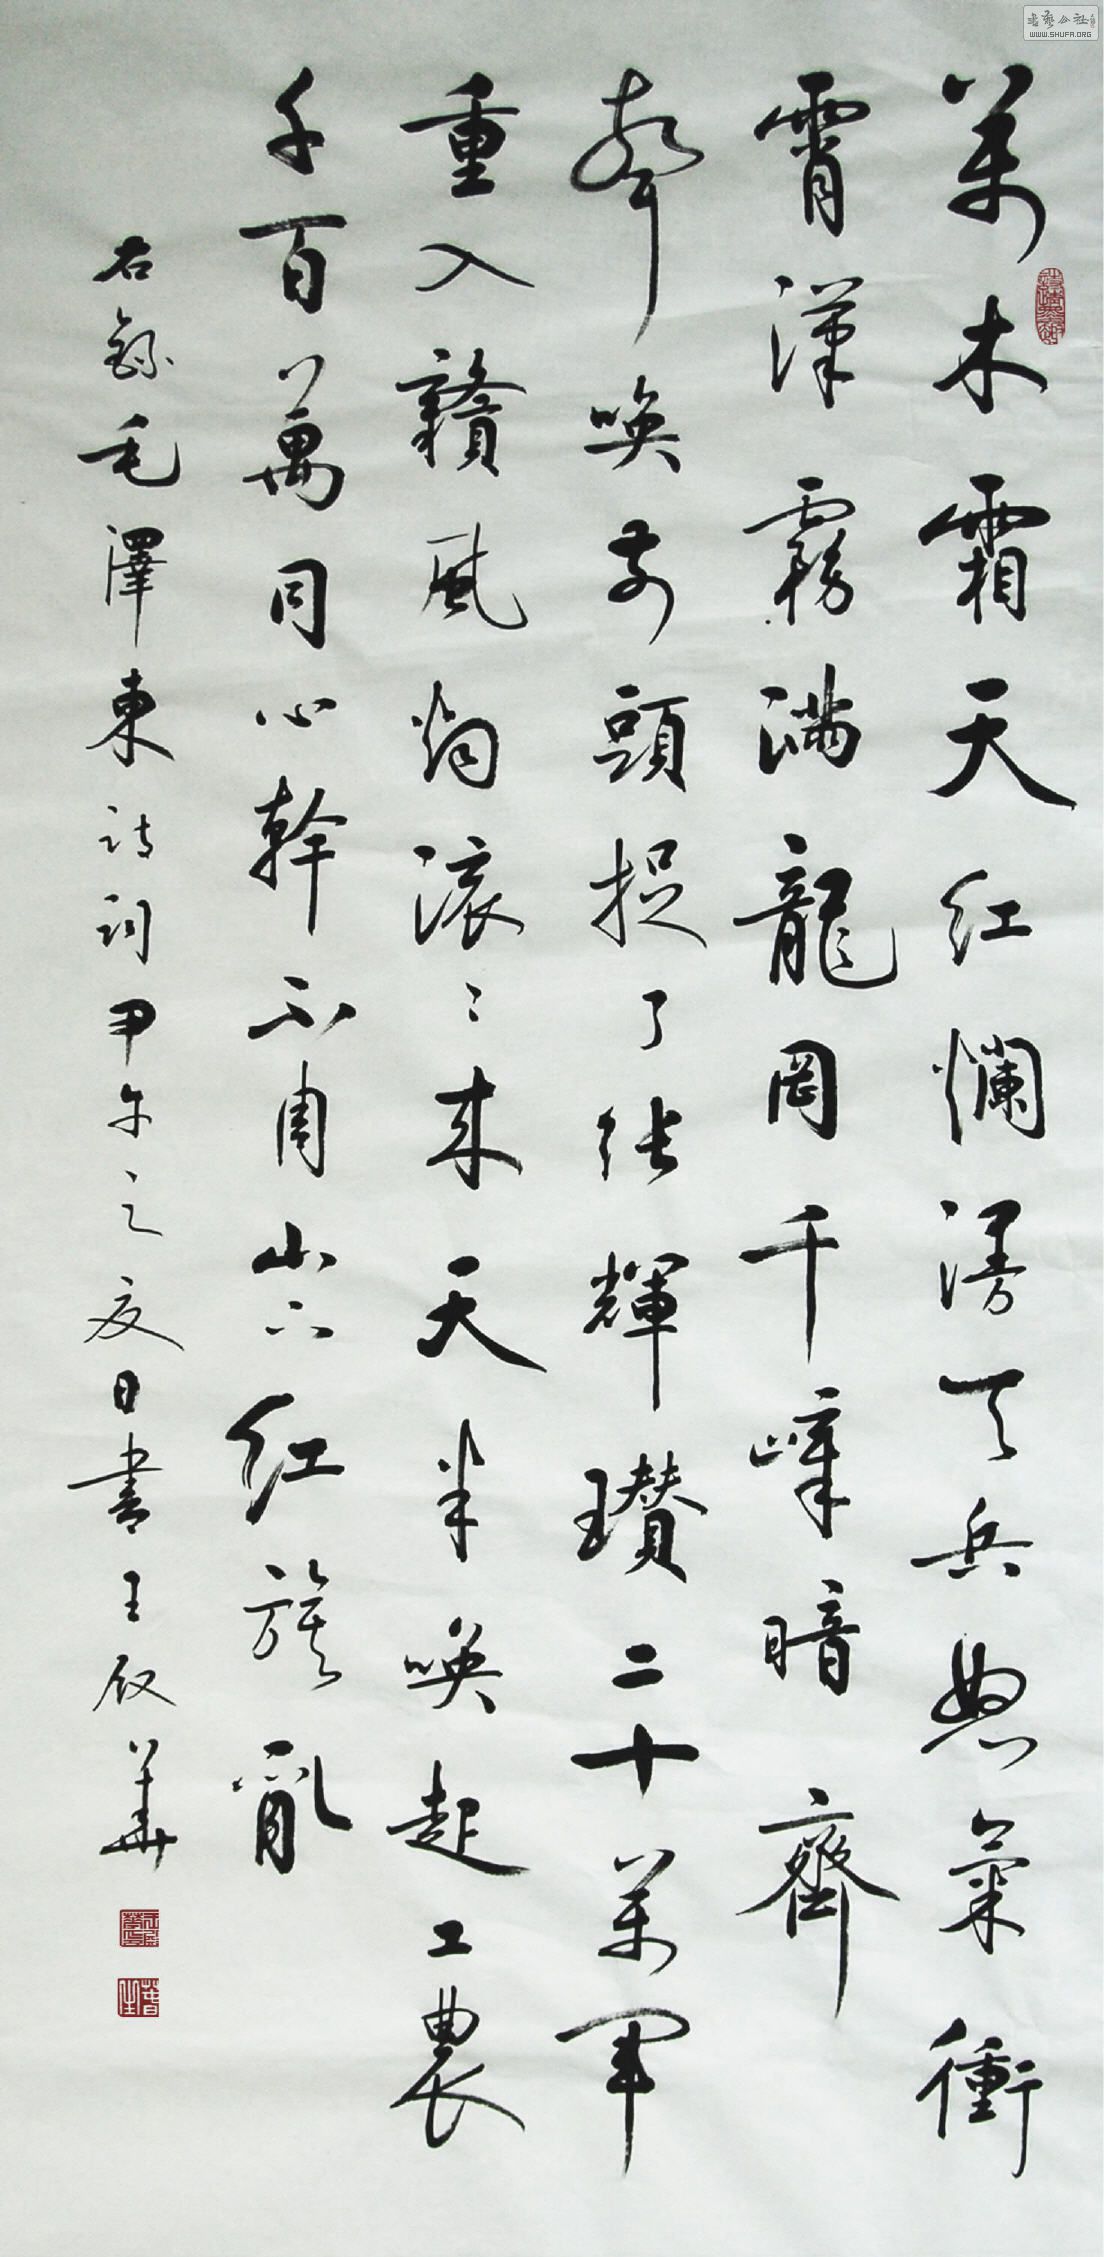 萬木霜天红爛漫天兵怒氣衝
霄漢霧满龍岡千嶂暗齊
聲唤前頭捉了张輝瓚二十萬軍
重入贛風烟滚〻来天半唤起工農
千百萬同心幹不周山下红旗亂
右錄毛澤東诗词甲午之夏日書王殿華
書藝公社
WWW.SHUFA.ORG